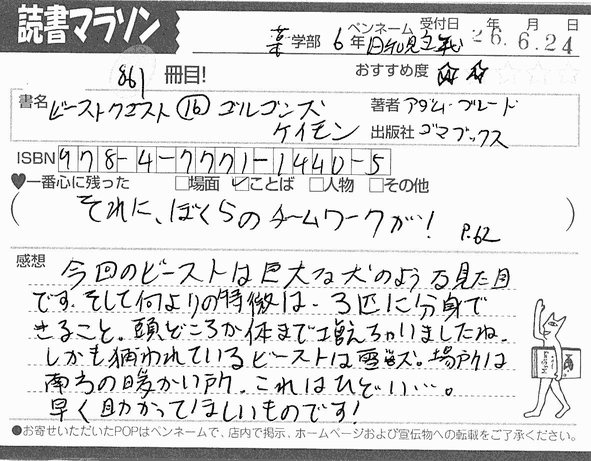 読書マラソン
ペンネーム 受付日 年 月 日
薬学部 6年 日和見主義 26.6.24
861冊目! おすすめ度 ☆☆☆☆☆
書名 ビーストクエスト⑯ ゴルゴンズ 著者 アダム・ブレード
ケイモン 出版社 ゴマブックス
ISBN 978-4-7771-1440-5
♥一番心に残った □場面 ☑ことば □人物 □その他
( それに、ぼくらのチームワークが! P.62 )
感想 今回のビーストは巨大な犬のような見た目
です。そして何よりの特徴は、3匹に分身で
きること。頭どころか体まで増えちゃいましたね。
しかも捕われているビーストは雪。場所は
南方の暖かい所。これはひどい…。
早く助かってほしいものです!
●お寄せいただいたPOPはペンネームで、店内で掲示、ホームページおよび宣伝物への転載をご了承ください。